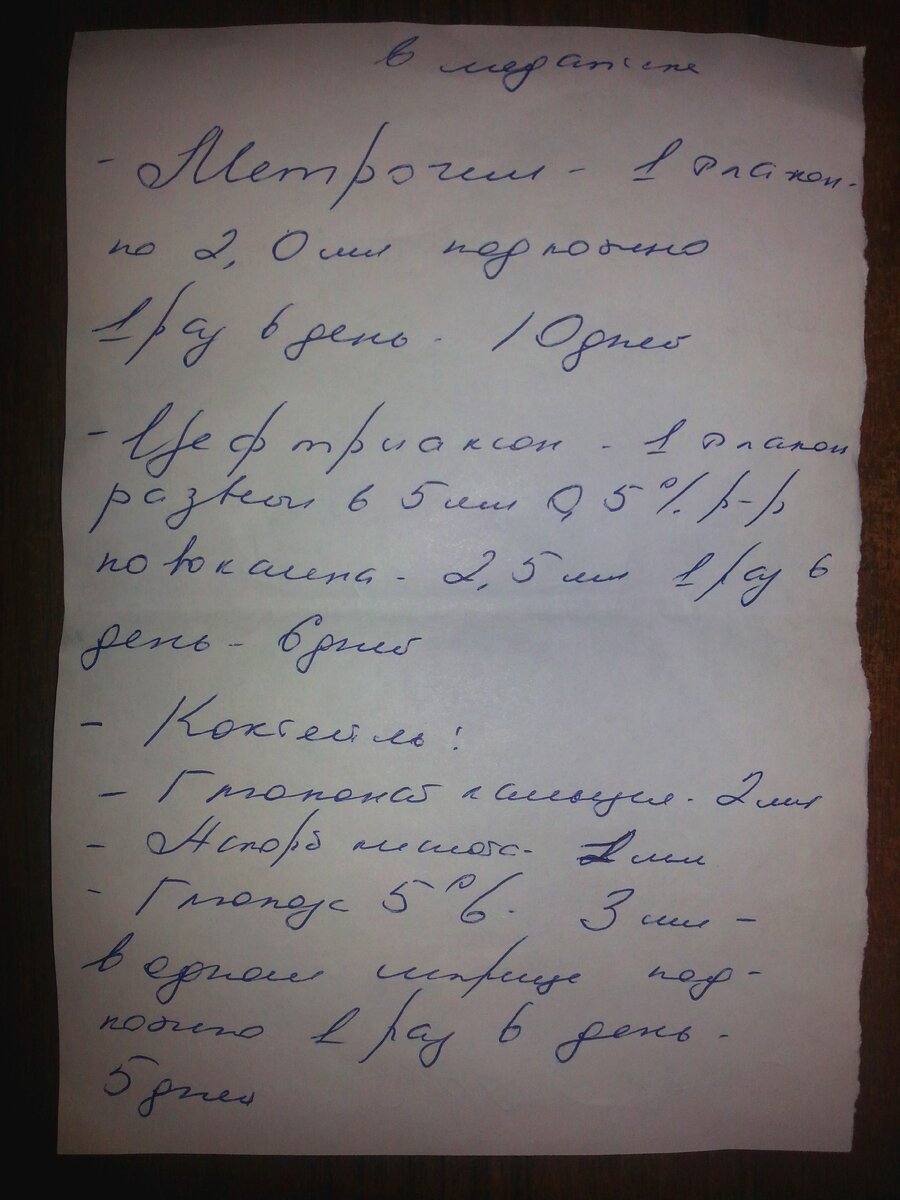 в мед аптеке
- Метрогил - 1 флакон -
по 2,0 мл подкожно
1 раз в день - 10 дней
- Цефтриаксон - 1 флакон
развели в 5 мл 0,5% р-р
новокаина - 2,5 мл 1 раз в
день - 6 дней
- Коктейль:
- Глюконат кальция - 2 мл
- Аскорб кислота - 2 мл
- Глюкоза 5% - 3 мл -
в одном шприце под-
кожно 1 раз в день -
5 дней